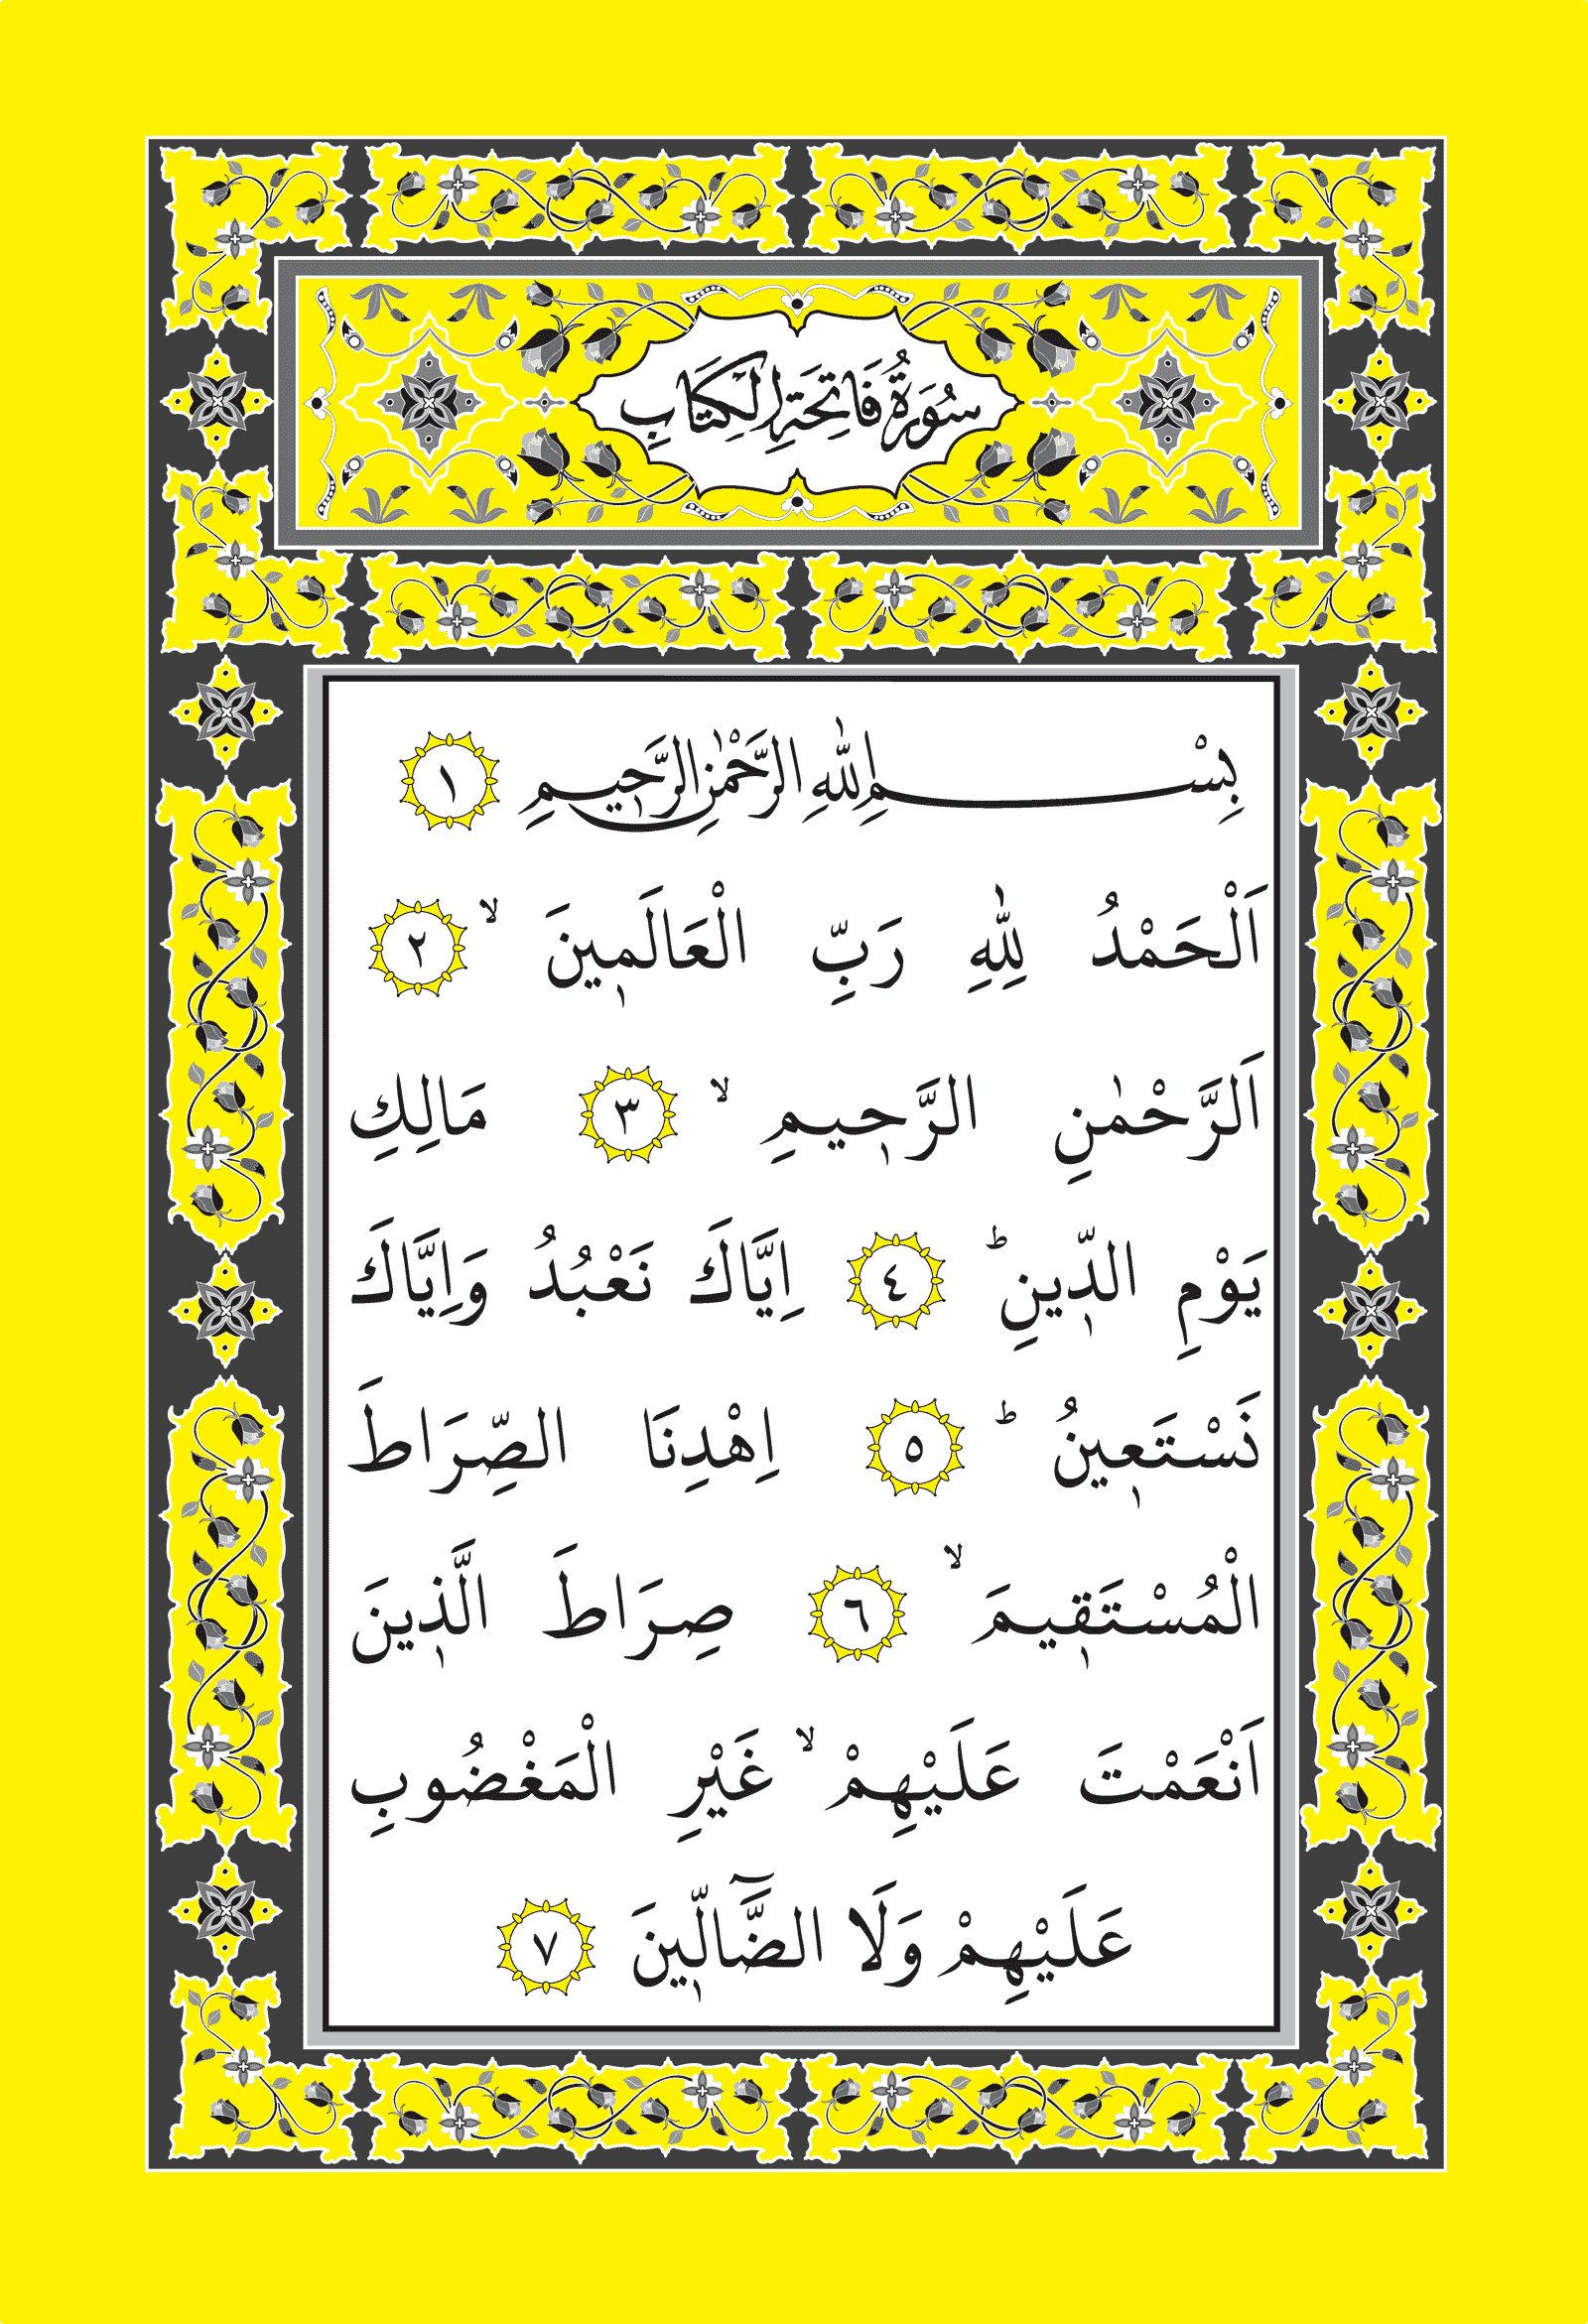 سُورَةُ فَاتِحَةِ الْكِتَابِ
بِسْمِ اللّٰهِ الرَّحْمٰنِ الرَّح۪يمِ ١
اَلْحَمْدُ لِلّٰهِ رَبِّ الْعَالَم۪ينَۙ ٢
اَلرَّحْمٰنِ الرَّح۪يمِۙ ٣ مَالِكِ
يَوْمِ الدّ۪ينِۜ ٤ اِيَّاكَ نَعْبُدُ وَاِيَّاكَ
نَسْتَع۪ينُۜ ٥ اِهْدِنَا الصِّرَاطَ
الْمُسْتَق۪يمَۙ ٦ صِرَاطَ الَّذ۪ينَ
اَنْعَمْتَ عَلَيْهِمْۙ غَيْرِ الْمَغْضُوبِ
عَلَيْهِمْ وَلَا الضَّٓالّ۪ينَ ٧